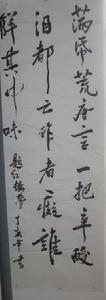 满纸荒唐言一把辛酸
泪都云作者痴谁
解其中味
题红楼梦 丁亥年书